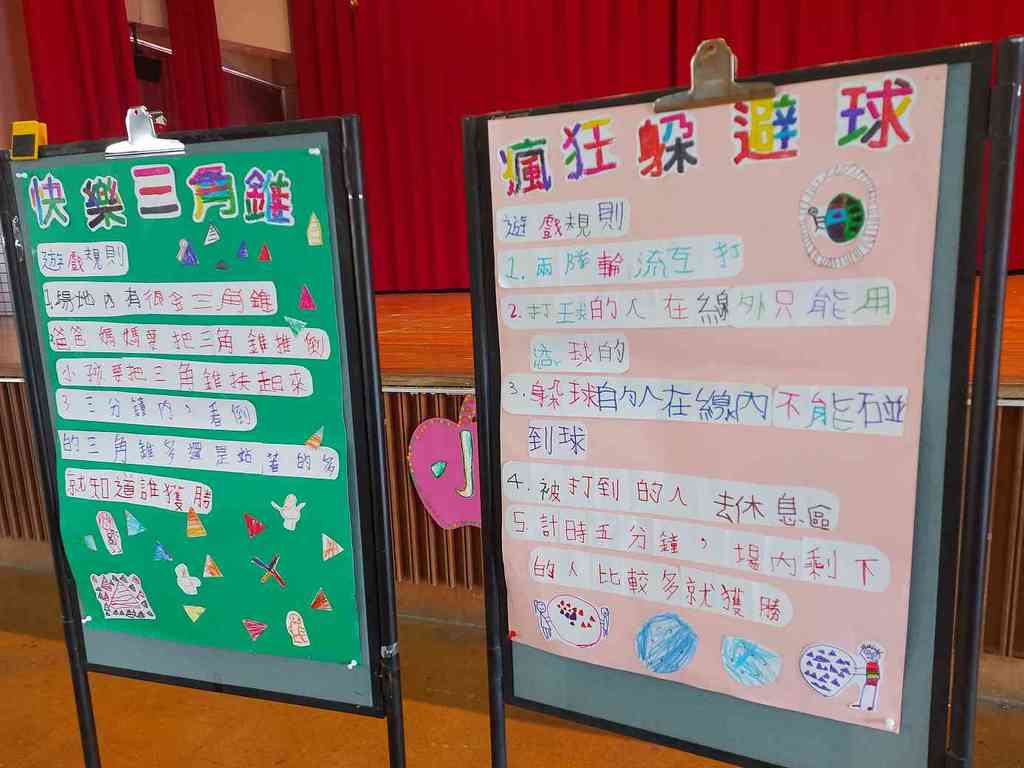 快樂三角錐
遊戲規則
1.場地內有很多三角錐
爸爸媽媽要把三角錐推倒
小孩要把三角錐扶起來
3.三分鐘內,看倒
的三角錐多還是站著的多
就知道誰獲勝
瘋狂躲避球
遊戲規則
1.兩隊輪流互打
2.打球的人在線外只能用
滾球的
3.躲球的人在線內不能碰
到球
4.被打到的人去休息區
5.計時五分鐘,場內剩下
的人比較多就獲勝
小